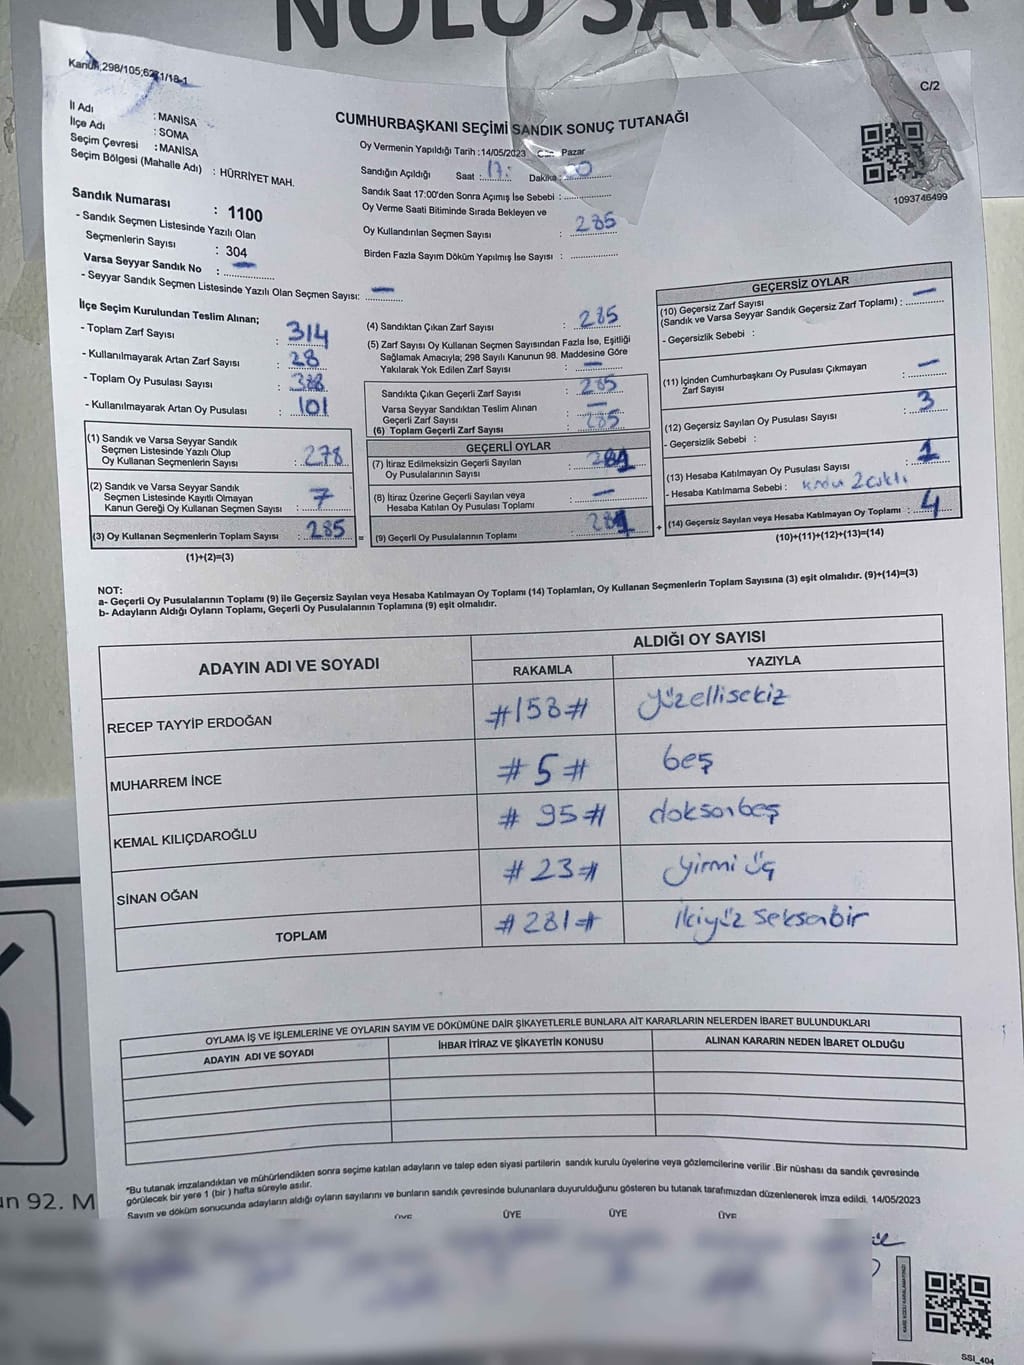 NOLU SANDIK
Kanun;298/105;6271/18-1
C/2
İl Adı : MANİSA
İlçe Adı : SOMA
Seçim Çevresi : MANİSA
Seçim Bölgesi (Mahalle Adı) : HÜRRİYET MAH.
CUMHURBAŞKANI SEÇİMİ SANDIK SONUÇ TUTANAĞI
Oy Vermenin Yapıldığı Tarih :14/05/2023 Pazar
Sandığın Açıldığı Saat : 17: Dakika :
Sandık Saat 17:00'den Sonra Açımış İse Sebebi :
Oy Verme Saati Bitiminde Sırada Bekleyen ve
Oy Kullandırılan Seçmen Sayısı : 285
Birden Fazla Sayım Döküm Yapılmış İse Sayısı :
1093746499
Sandık Numarası : 1100
- Sandık Seçmen Listesinde Yazılı Olan
Seçmenlerin Sayısı : 304
Varsa Seyyar Sandık No : —
- Seyyar Sandık Seçmen Listesinde Yazılı Olan Seçmen Sayısı: —
İlçe Seçim Kurulundan Teslim Alınan;
- Toplam Zarf Sayısı : 314
- Kullanılmayarak Artan Zarf Sayısı : 28
- Toplam Oy Pusulası Sayısı :
- Kullanılmayarak Artan Oy Pusulası : 101
(1) Sandık ve Varsa Seyyar Sandık
Seçmen Listesinde Yazılı Olup
Oy Kullanan Seçmenlerin Sayısı : 278
(2) Sandık ve Varsa Seyyar Sandık
Seçmen Listesinde Kayıtlı Olmayan
Kanun Gereği Oy Kullanan Seçmen Sayısı : 7
(3) Oy Kullanan Seçmenlerin Toplam Sayısı : 285
(1)+(2)=(3)
=
(4) Sandıktan Çıkan Zarf Sayısı : 285
(5) Zarf Sayısı Oy Kullanan Seçmen Sayısından Fazla İse, Eşitliği
Sağlamak Amacıyla; 298 Sayılı Kanunun 98. Maddesine Göre
Yakılarak Yok Edilen Zarf Sayısı : —
Sandıkta Çıkan Geçerli Zarf Sayısı : 285
Varsa Seyyar Sandıktan Teslim Alınan
Geçerli Zarf Sayısı : —
(6) Toplam Geçerli Zarf Sayısı : 285
GEÇERLİ OYLAR
(7) İtiraz Edilmeksizin Geçerli Sayılan
Oy Pusulalarının Sayısı : 281
(8) İtiraz Üzerine Geçerli Sayılan veya
Hesaba Katılan Oy Pusulası Toplamı : —
(9) Geçerli Oy Pusulalarının Toplamı : 281
+
GEÇERSİZ OYLAR
(10) Geçersiz Zarf Sayısı
(Sandık ve Varsa Seyyar Sandık Geçersiz Zarf Toplamı) : —
- Geçersizlik Sebebi :
(11) İçinden Cumhurbaşkanı Oy Pusulası Çıkmayan
Zarf Sayısı : —
(12) Geçersiz Sayılan Oy Pusulası Sayısı : 3
- Geçersizlik Sebebi :
(13) Hesaba Katılmayan Oy Pusulası Sayısı : 1
- Hesaba Katılmama Sebebi :
(14) Geçersiz Sayılan veya Hesaba Katılmayan Oy Toplamı : 4
(10)+(11)+(12)+(13)=(14)
NOT:
a- Geçerli Oy Pusulalarının Toplamı (9) ile Geçersiz Sayılan veya Hesaba Katılmayan Oy Toplamı (14) Toplamları, Oy Kullanan Seçmenlerin Toplam Sayısına (3) eşit olmalıdır. (9)+(14)=(3)
b- Adayların Aldığı Oyların Toplamı, Geçerli Oy Pusulalarının Toplamına (9) eşit olmalıdır.
ADAYIN ADI VE SOYADI
ALDIĞI OY SAYISI
RAKAMLA YAZIYLA
RECEP TAYYİP ERDOĞAN #158# yüzellisekiz
MUHARREM İNCE #5# beş
KEMAL KILIÇDAROĞLU #95# doksanbeş
SİNAN OĞAN #23# yirmi üç
TOPLAM #281# ikiyüz seksenbir
OYLAMA İŞ VE İŞLEMLERİNE VE OYLARIN SAYIM VE DÖKÜMÜNE DAİR ŞİKAYETLERLE BUNLARA AİT KARARLARIN NELERDEN İBARET BULUNDUKLARI
ADAYIN ADI VE SOYADI İHBAR İTİRAZ VE ŞİKAYETİN KONUSU ALINAN KARARIN NEDEN İBARET OLDUĞU
*Bu tutanak imzalandıktan ve mühürlendikten sonra seçime katılan adayların ve talep eden siyasi partilerin sandık kurulu üyelerine veya gözlemcilerine verilir .Bir nüshası da sandık çevresinde
görülecek bir yere 1 (bir ) hafta süreyle asılır.
Sayım ve döküm sonucunda adayların aldığı oyların sayılarını ve bunların sandık çevresinde bulunanlara duyurulduğunu gösteren bu tutanak tarafımızdan düzenlenerek imza edildi. 14/05/2023
ÜYE ÜYE ÜYE ÜYE
un 92. M
KARE KODU KARALAMAYINIZ!
SSI_404